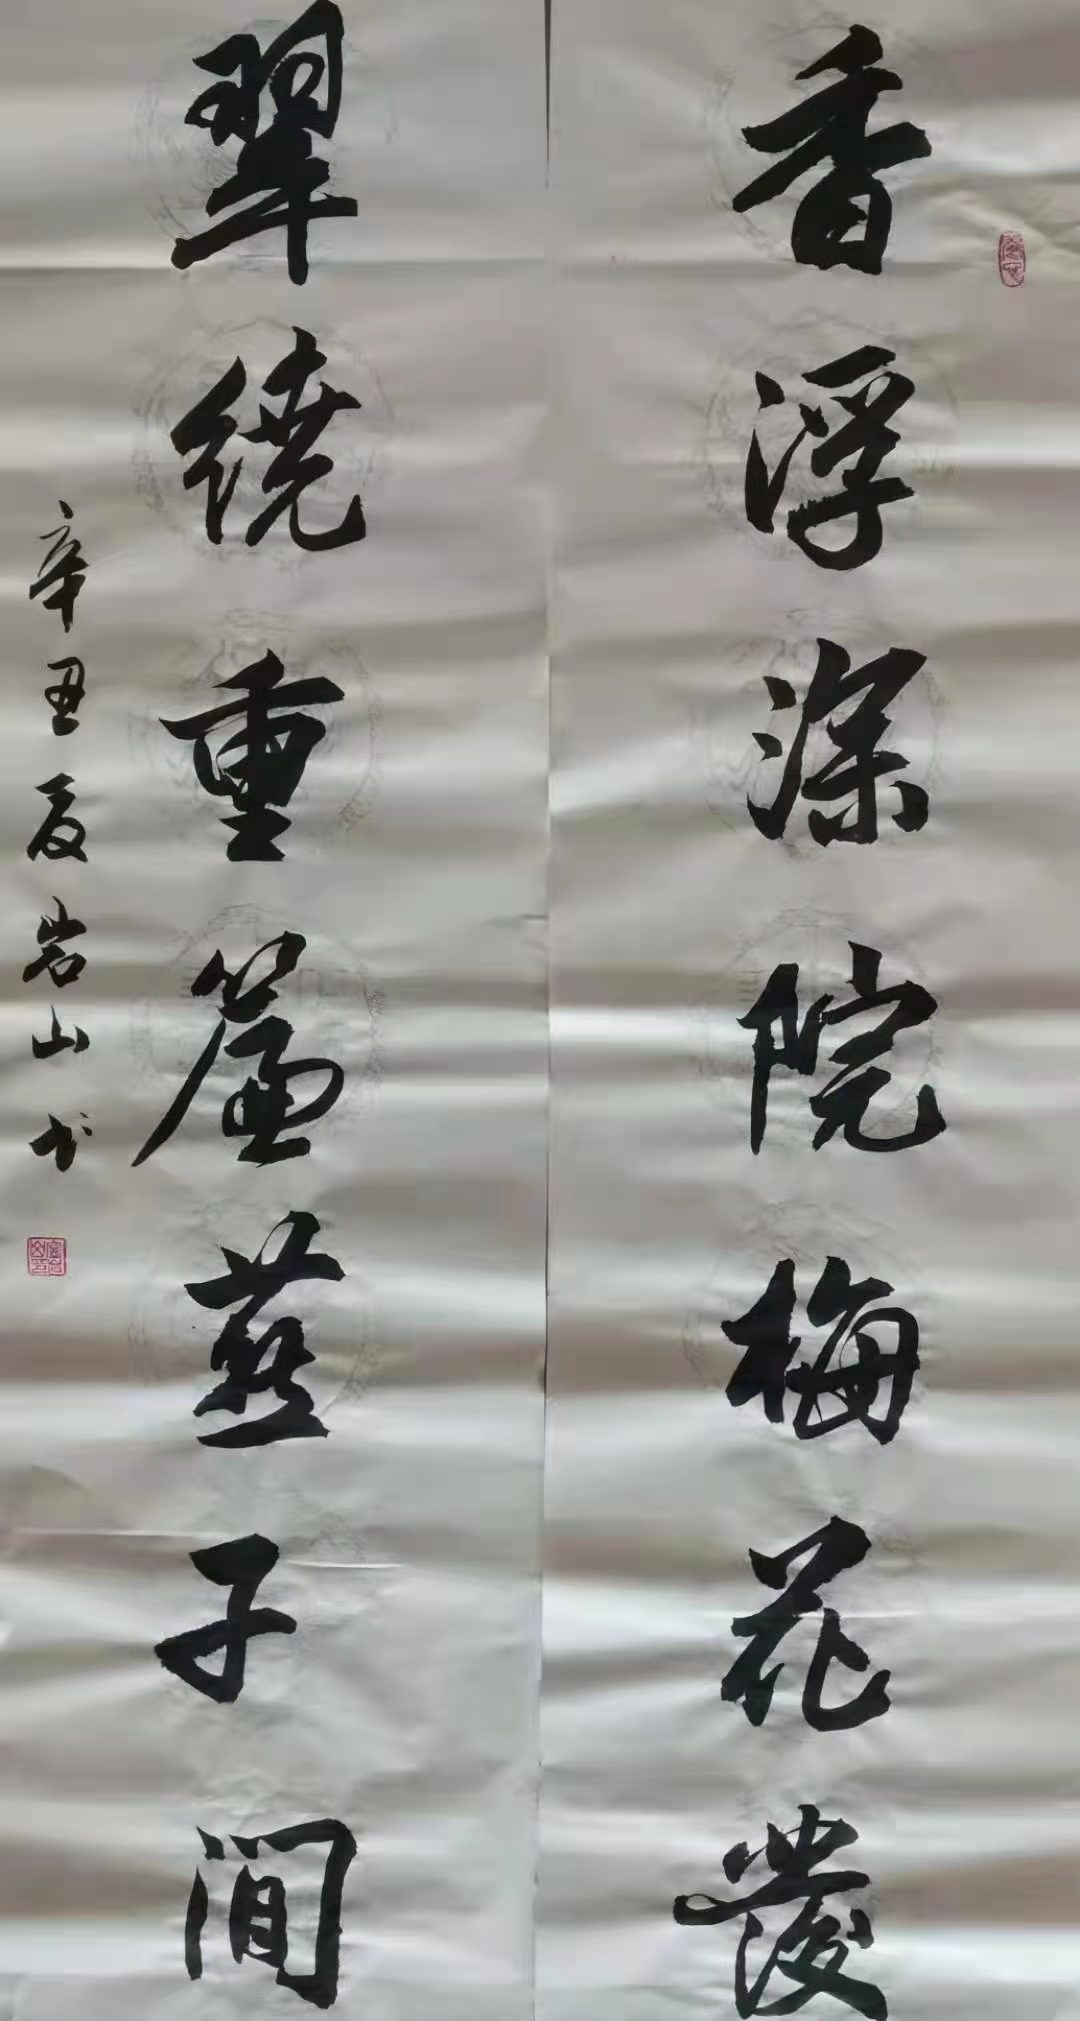 香浮深院梅花發
翠繞重簾燕子閒
辛丑夏岩山书